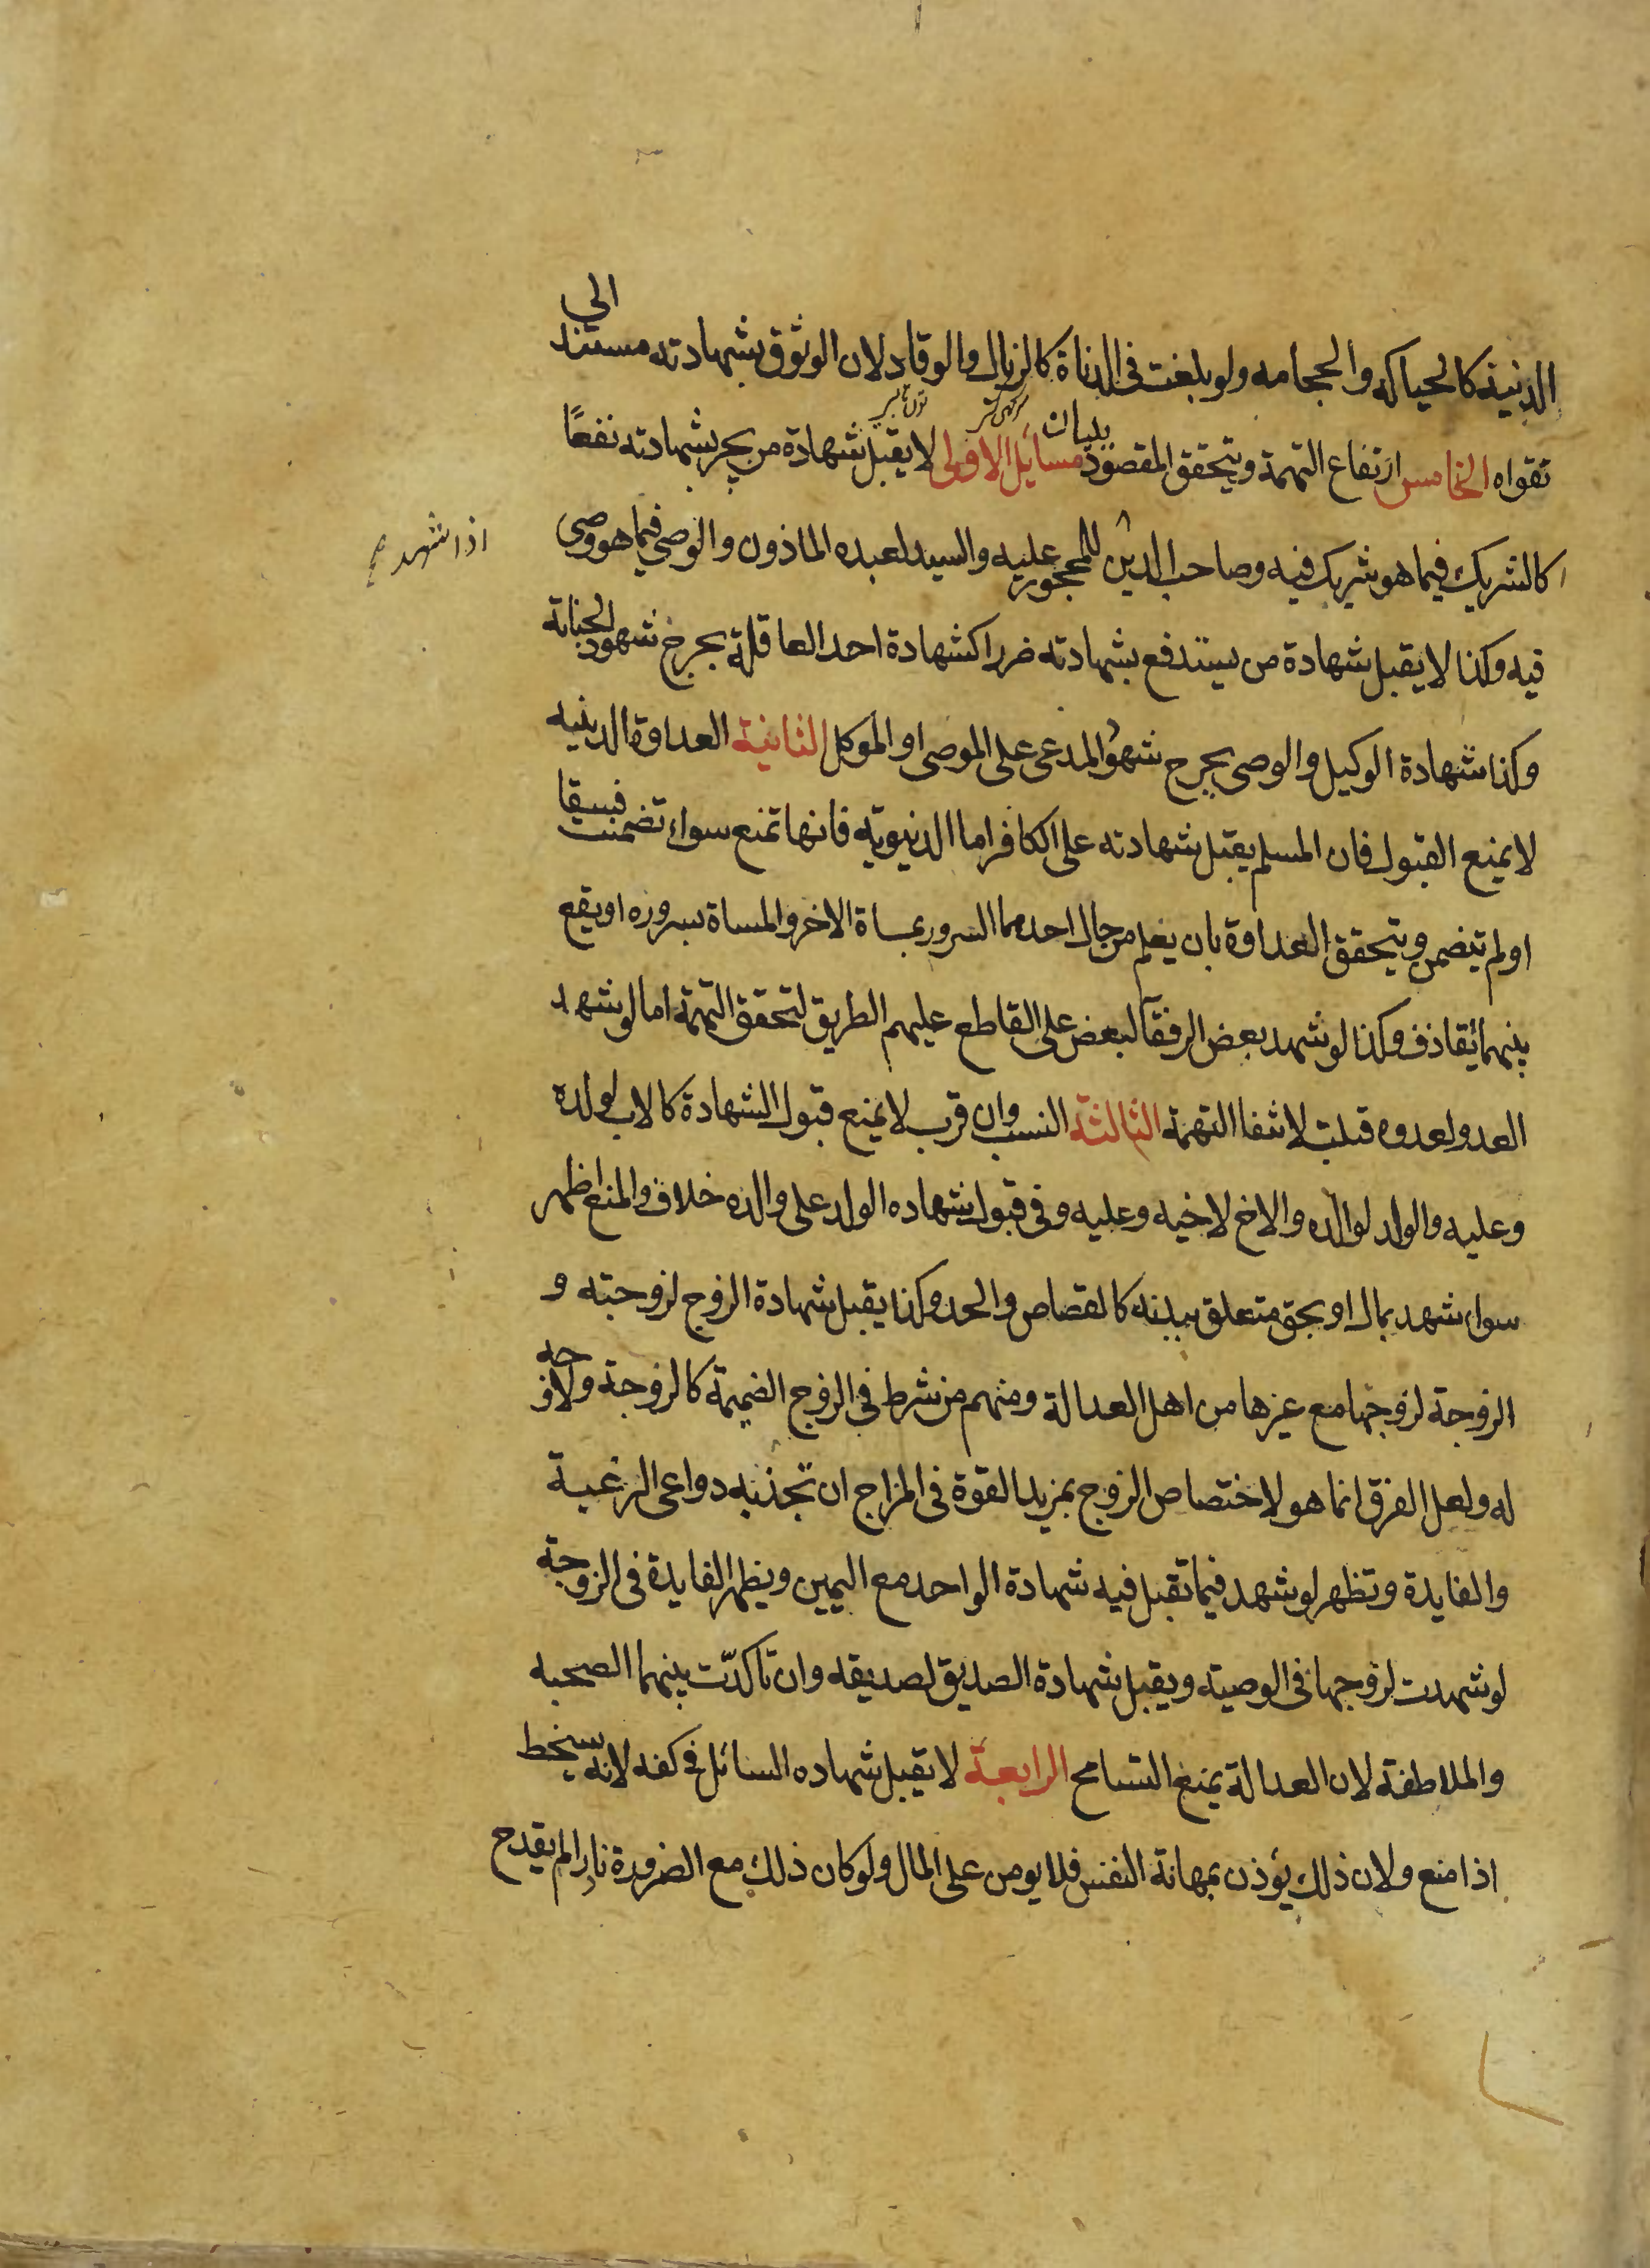 الدنية كالحياكه والحجامه ولو بلغت فى الدناة كالزبال والوقاد لان الوثوق بشهادته مستند الى
تقواه الخامس ارتفاع التهمة ويتحقق المقصود ببيان مسائل الاولى لا يقبل شهادة من يجر بشهادته نفعًا
كالشريك فيما هو شريك فيه وصاحب الدين للمحجور عليه والسيد لعبده الماذون والوصى فيما هو وصى
اذا شهد
فيه وكذا لا يقبل شهادة من يستدفع بشهادته ضررا كشهادة احد العاقلة بجرح شهود الجناية
وكذا شهادة الوكيل والوصى بجرح شهود المدعى على الموصى او الموكل الثانية العداوة الدينيه
لا يمنع القبول فان المسلم يقبل شهادته على الكافر اما الدنيويه فانها تمنع سواء تضمنت فسقا
او لم تتضمن ويتحقق العداوة بان يعلم من حال احدهما السرور بمساة الاخر والمساة بسروره او يقع
بينهما تقاذف وكذا لو شهد بعض الرفقآ لبعض على القاطع عليهم الطريق لتحقق التهمة اما لو شهد
العدو لعدوه قبلت لانتفا التهمة الثالثة النسب وان قرب لا يمنع قبول الشهادة كالاب لولده
وعليه والولد لوالده والاخ لاخيه وعليه وفى قبول شهاده الولد على والده خلاف والمنع اظهر
سواء شهد بمال او بحق متعلق ببدنه كالقصاص والحد وكذا يقبل شهادة الزوج لزوجته و
الزوجة لزوجها مع غيرها من اهل العدالة ومنهم من شرط فى الزوج الضميمة كالزوجة ولا وجه
له ولعل الفرق انما هو لاختصاص الزوج بمزيد القوة فى المزاج ان تجذبه دواعى الرغبة
والفايدة وتظهر لو شهد فيما تقبل فيه شهادة الواحد مع اليمين ويظهر الفايدة فى الزوجة
لو شهدت لزوجها فى الوصية ويقبل شهادة الصديق لصديقه وان تاكدّت بينهما الصحبه
والملاطفة لان العدالة يمنع التسامح الرابعة لا يقبل شهاده السائل فى كفه لانه يسخط
اذا منع ولان ذلك يؤذن بمهانة النفس فلا يومن على المال ولو كان ذلك مع الضرورة نادرا لم يقدح